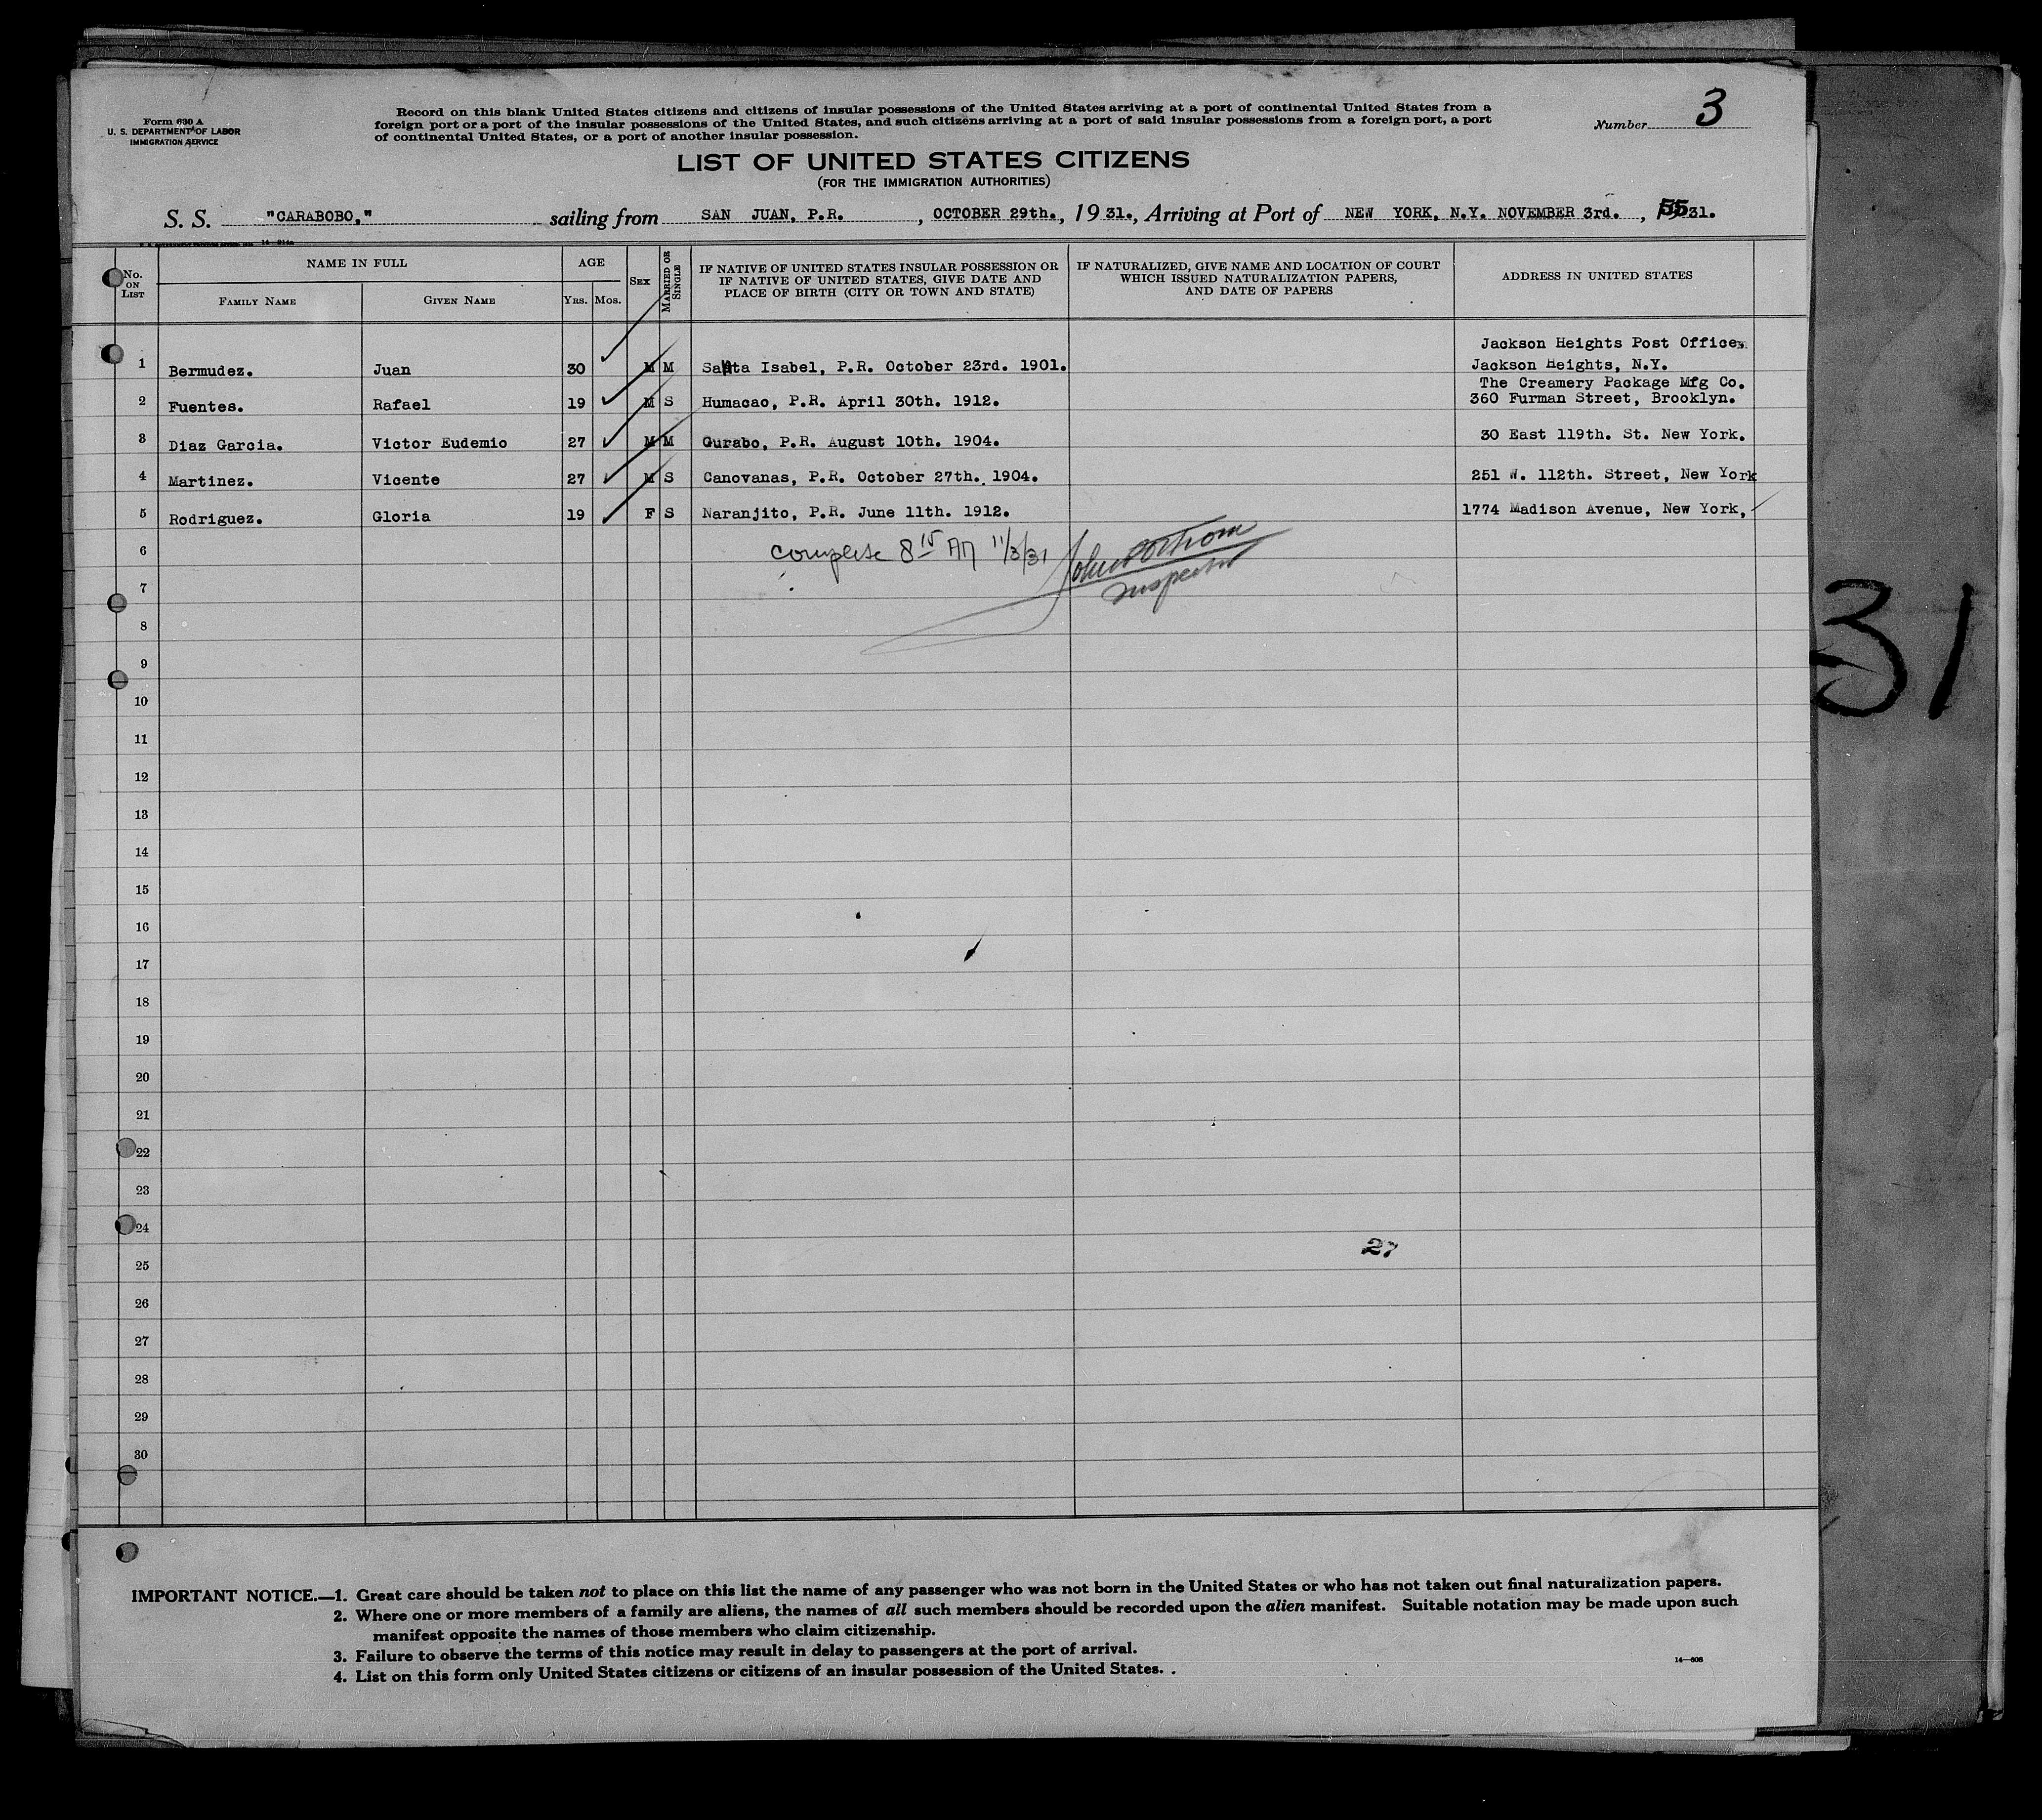 Form 630 A
U. S. DEPARTMENT OF LABOR
IMMIGRATION SERVICE
Record on this blank United States citizens and citizens of insular possessions of the United States arriving at a port of continental United States from a
foreign port or a port of the insular possessions of the United States, and such citizens arriving at a port of said insular possessions from a foreign port, a port
of continental United States, or a port of another insular possession.
Number 3
LIST OF UNITED STATES CITIZENS
(FOR THE IMMIGRATION AUTHORITIES)
S. S. "CARABOBO," sailing from SAN JUAN, P.R. , OCTOBER 29th., 19 31., Arriving at Port of NEW YORK, N.Y. NOVEMBER 3rd. , 31.
No. ON LIST
NAME IN FULL
FAMILY NAME
GIVEN NAME
AGE
YRS.
MOS.
SEX
MARRIED OR SINGLE
IF NATIVE OF UNITED STATES INSULAR POSSESSION OR
IF NATIVE OF UNITED STATES, GIVE DATE AND
PLACE OF BIRTH (CITY OR TOWN AND STATE)
IF NATURALIZED, GIVE NAME AND LOCATION OF COURT
WHICH ISSUED NATURALIZATION PAPERS,
AND DATE OF PAPERS
ADDRESS IN UNITED STATES
Jackson Heights Post Office,
1 Bermudez. Juan 30 M M Santa Isabel, P.R. October 23rd. 1901. Jackson Heights, N.Y.
The Creamery Package Mfg Co.
2 Fuentes. Rafael 19 M S Humacao, P.R. April 30th. 1912. 360 Furman Street, Brooklyn.
3 Diaz Garcia. Victor Eudemio 27 M M Gurabo, P.R. August 10th. 1904. 30 East 119th. St. New York.
4 Martinez. Vicente 27 M S Canovanas, P.R. October 27th. 1904. 251 W. 112th. Street, New York
5 Rodriguez. Gloria 19 F S Naranjito, P.R. June 11th. 1912. 1774 Madison Avenue, New York,
6 complete 8 15 AM 11/3/31
Inspector
7
8
9
10
11
12
13
14
15
16
17
18
19
20
21
22
23
24
27
25
26
27
28
29
30
31
IMPORTANT NOTICE.—1. Great care should be taken not to place on this list the name of any passenger who was not born in the United States or who has not taken out final naturalization papers.
2. Where one or more members of a family are aliens, the names of all such members should be recorded upon the alien manifest. Suitable notation may be made upon such
manifest opposite the names of those members who claim citizenship.
3. Failure to observe the terms of this notice may result in delay to passengers at the port of arrival.
4. List on this form only United States citizens or citizens of an insular possession of the United States.
14—608